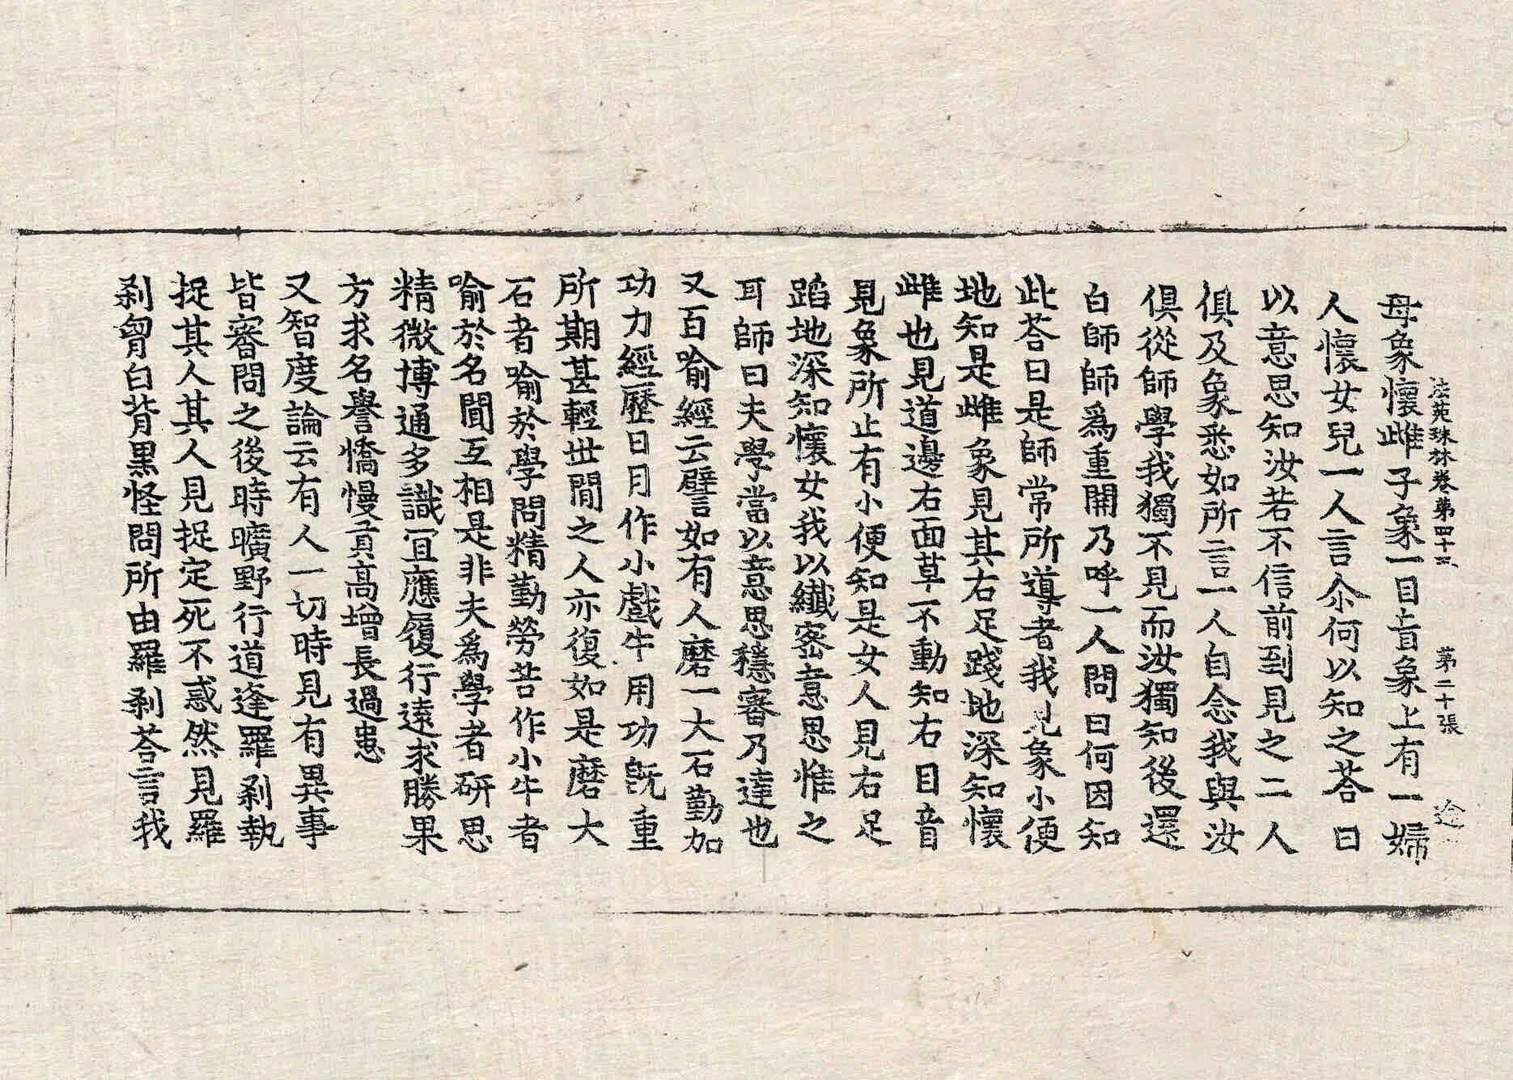 法苑珠林卷第四十三　第二十張　逵
母象懷雌子象一目盲象上有一婦
人懷女兒一人言尒何以知之荅曰
以意思知汝若不信前到見之二人
俱及象悉如所言一人自念我與汝
俱從師學我獨不見而汝獨知後還
白師師爲重開乃呼一人問曰何因知
此荅曰是師常所導者我見象小便
地知是雌象見其右足踐地深知懷
雌也見道邊右面草不動知右目盲
見象所止有小便知是女人見右足
蹈地深知懷女我以纖密意思惟之
耳師曰夫學當以意思穩審乃達也
又百喻經云譬如有人磨一大石勤加
功力經歷日月作小戲牛用功旣重
所期甚輕世間之人亦復如是磨大
石者喻於學問精勤勞苦作小牛者
喻於名聞互相是非夫爲學者研思
精微博通多識宜應履行遠求勝果
方求名譽憍慢貢高增長過患
又智度論云有人一切時見有異事
皆審問之後時曠野行道逢羅剎執
捉其人其人見捉定死不惑然見羅
剎胷白背黑怪問所由羅剎荅言我